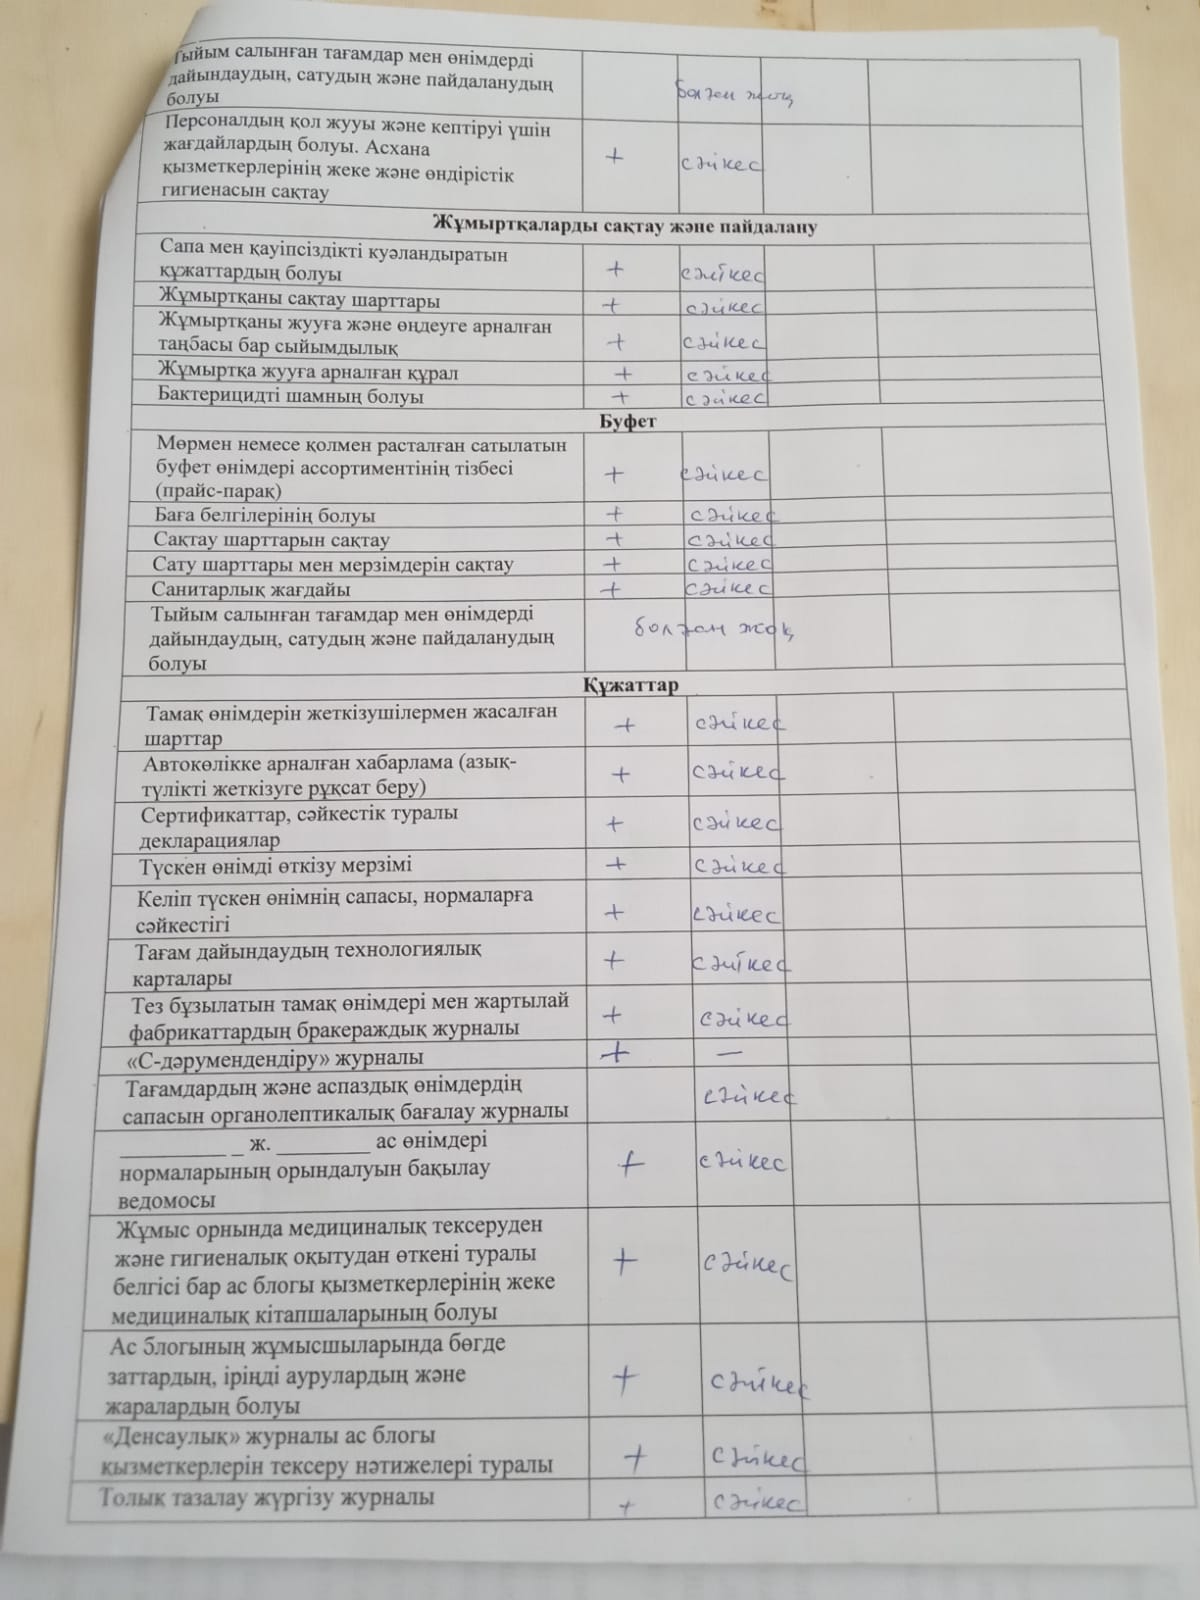 Тыйым салынған тағамдар мен өнімдерді
дайындаудың, сатудың және пайдаланудың
болуы
болған жоқ
Персоналдың қол жууы және кептіруі үшін
жағдайлардың болуы. Асхана
қызметкерлерінің жеке және өндірістік
гигиенасын сақтау
+ сәйкес
Жұмыртқаларды сақтау және пайдалану
Сапа мен қауіпсіздікті куәландыратын
құжаттардың болуы
+ сәйкес
Жұмыртқаны сақтау шарттары + сәйкес
Жұмыртқаны жууға және өңдеуге арналған
таңбасы бар сыйымдылық
+ сәйкес
Жұмыртқа жууға арналған құрал + сәйкес
Бактерицидті шамның болуы + сәйкес
Буфет
Мөрмен немесе қолмен расталған сатылатын
буфет өнімдері ассортиментінің тізбесі
(прайс-парақ)
+ сәйкес
Баға белгілерінің болуы + сәйкес
Сақтау шарттарын сақтау + сәйкес
Сату шарттары мен мерзімдерін сақтау + сәйкес
Санитарлық жағдайы + сәйкес
Тыйым салынған тағамдар мен өнімдерді
дайындаудың, сатудың және пайдаланудың
болуы
болған жоқ
Құжаттар
Тамақ өнімдерін жеткізушілермен жасалған
шарттар
+ сәйкес
Автокөлікке арналған хабарлама (азық-
түлікті жеткізуге рұқсат беру)
+ сәйкес
Сертификаттар, сәйкестік туралы
декларациялар
+ сәйкес
Түскен өнімді өткізу мерзімі + сәйкес
Келіп түскен өнімнің сапасы, нормаларға
сәйкестігі
+ сәйкес
Тағам дайындаудың технологиялық
карталары
+ сәйкес
Тез бұзылатын тамақ өнімдері мен жартылай
фабрикаттардың бракераждық журналы
+ сәйкес
«С-дәрумендендіру» журналы + —
Тағамдардың және аспаздық өнімдердің
сапасын органолептикалық бағалау журналы
сәйкес
__________ _ ж. _________ ас өнімдері
нормаларының орындалуын бақылау
ведомосы
+ сәйкес
Жұмыс орнында медициналық тексеруден
және гигиеналық оқытудан өткені туралы
белгісі бар ас блогы қызметкерлерінің жеке
медициналық кітапшаларының болуы
+ сәйкес
Ас блогының жұмысшыларында бөгде
заттардың, іріңді аурулардың және
жаралардың болуы
+ сәйкес
«Денсаулық» журналы ас блогы
қызметкерлерін тексеру нәтижелері туралы
+ сәйкес
Толық тазалау жүргізу журналы + сәйкес